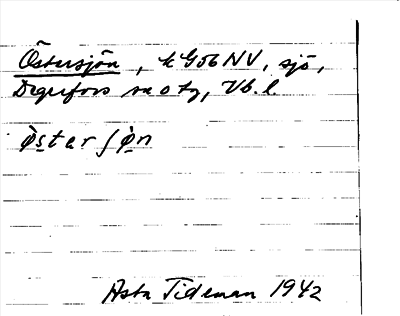 Östersjön, k G56 NV, sjö,
Degerfors sn o tg, Vb. l.
ø̀s̲ter ʃø̀n
Asta Tideman 1942